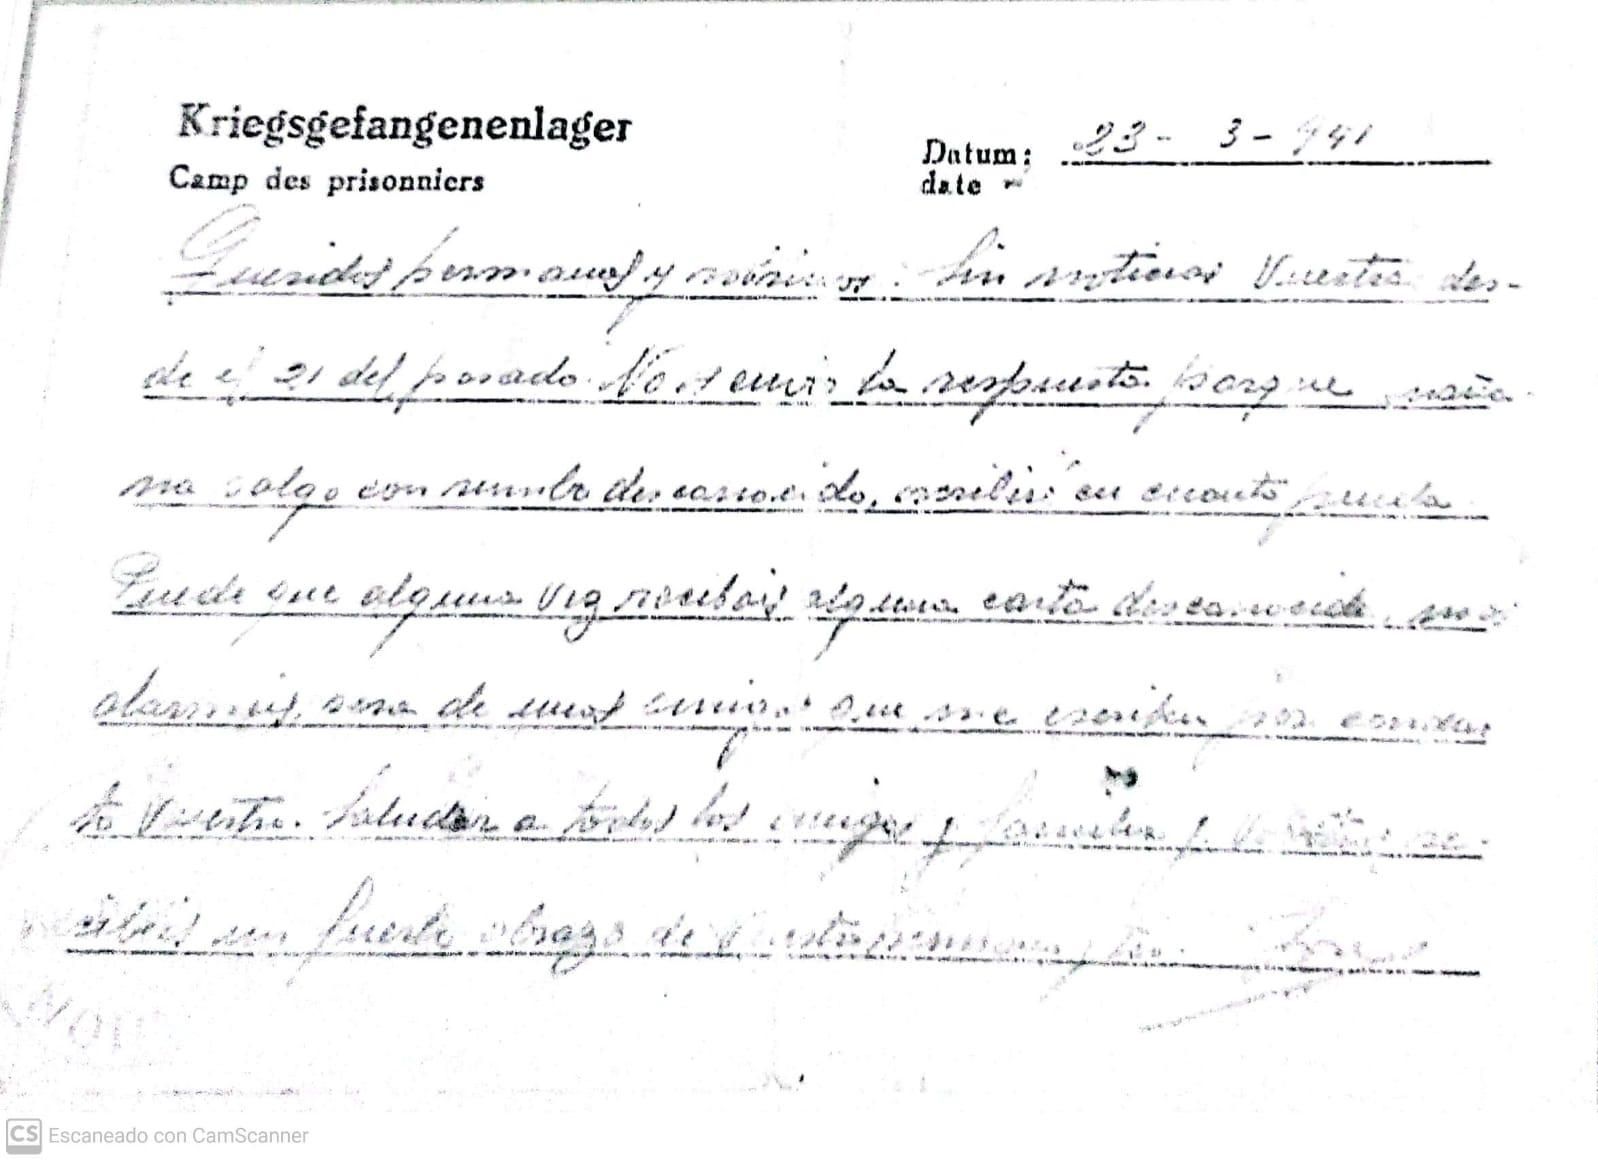 Kriegsgefangenenlager
Camp des prisonniers
Datum: 23 - 3 - 941
date
Queridos hermanos y sobrinos: Sin noticias Vuestras des-
de el 21 del pasado. No os envio la respuesta porque maña-
na salgo con rumbo desconocido, escribiré en cuanto pueda
Puede que alguna vez recibais alguna carta desconocida, no os
alarmeis, sera de unos amigos que me escriben por conduc
to Vuestro. Saludar a todos los amigos y familia y Vosotros re-
cibeis un fuerte abrazo de Vuestro hermano y tio.
CS Escaneado con CamScanner